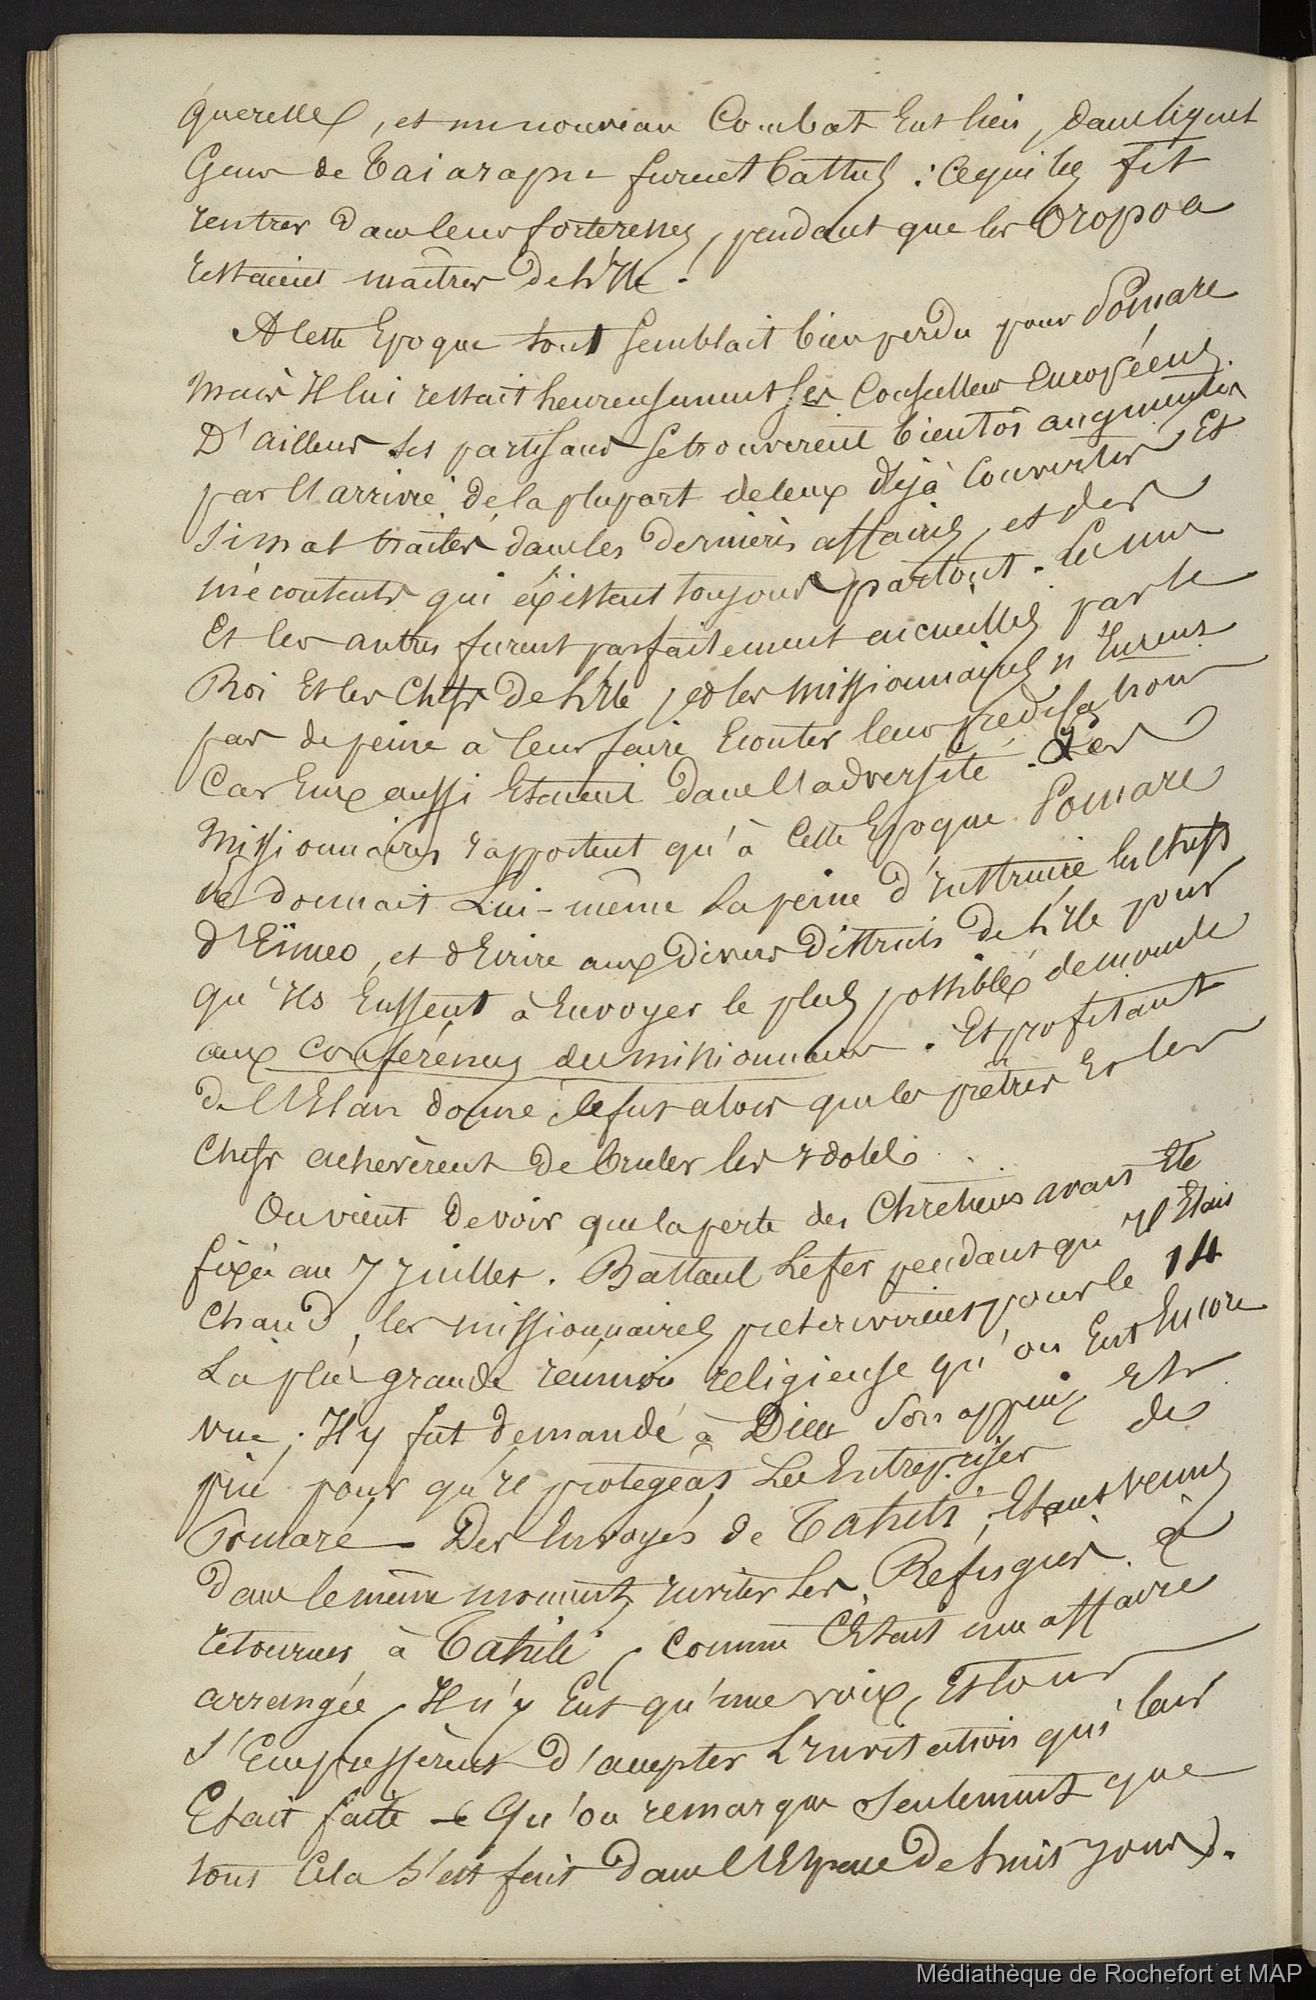 querelles, et un nouveau Combat Eut lieu, dans lequel
Ceux de Taiarapu furent battus : ce qui les fit
rentrer dans leurs forteresses, pendant que les Oropoa
restaient maîtres de L'Ile.
A Cette Epoque tout Semblait bien perdu pour Pomare
mais Il lui restait heureusement Ses Conseillers Européens.
D'ailleurs Ses partisans Se trouverent bientôt augmentés
par L'arrivée de la plupart de Ceux déjà Convertis, Et
Si mal traités dans les dernières affaires, et des
mécontents qui éxistent toujours partout. Les uns
Et les autres furent parfaitement accueillis par le
Roi Et les Chefs de L'Ile, et les missionnaires n'Eurent
pas de peine à leur faire Ecouter leurs prédications
Car Eux aussi Etaient dans L'adversité. Les
missionnaires rapportent qu'à Cette Epoque Pomare
Se donnait Lui-même La peine d'Instruire les Chefs
d'Eïmeo, et d'Ecrire aux divers Districts de L'Ile pour
qu'Ils Eussent à Envoyer le plus possible de monde
aux Conférences des missionnaires. Et profitant
de L'Elan donné, Ce fut alors que les prêtres Et les
Chefs achevèrent de bruler les Idoles.
On vient de voir que la perte des Chretiens avait Eté
fixée au 7 Juillet. Battant Le fer pendant qu'Il Etait
Chaud, les missionnaires prescrivirent pour le 14
La plus grande réunion religieuse qu'on Eut Encore
vue ; Il y fut demandé à Dieu Son appui, Et
prié pour qu'Il protegeât Les Entreprises de
Pomaré — Des Envoyés de Tahiti, Etant venus
dans le même moment, inviter Les Refugiés à
retourner à Tahiti, Comme C'Etait une affaire
arrangée, Il n'y Eut qu'une voix, Et tous
S'Empressèrent d'accepter L'Invitation qui leur
Etait faite — (Qu'on remarque Seulement que
tout Cela S'est fait dans L'Espace de huit jours).
Médiathèque de Rochefort et MAP